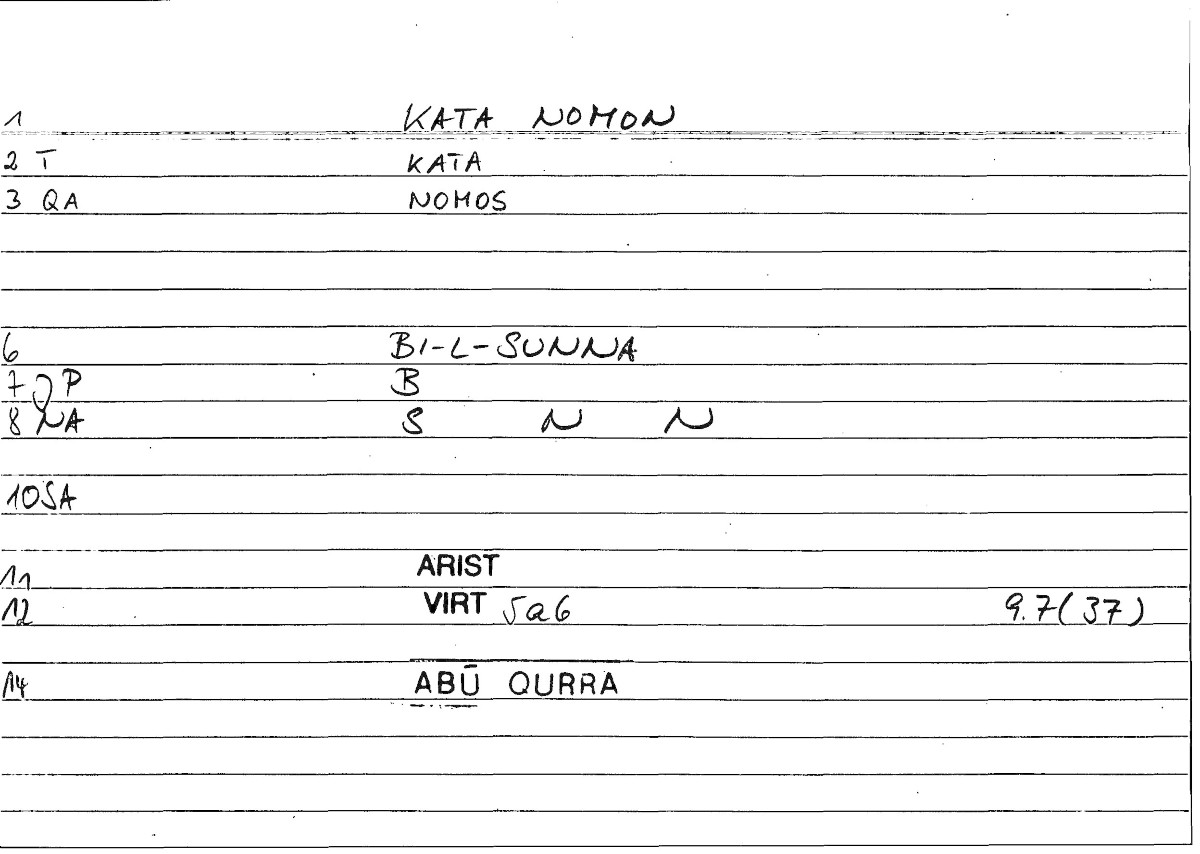 1 KATA NOMON
2 T KATA
3 QA NOMOS
6 BI-L-SUNNA
7 P B
8 NA S N N
10 SA
11 ARIST
12 VIRT 5a6 9.7(37)
14 ABŪ QURRA